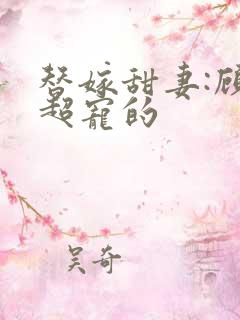 替嫁甜妻:顾
超宠的
吴奇